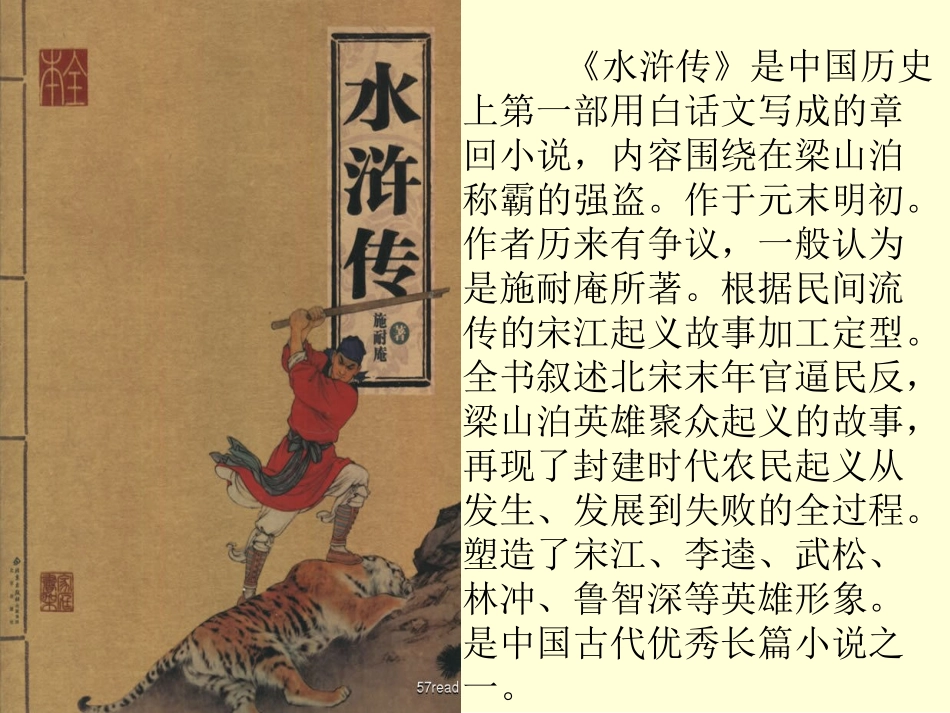 全本
水浒传
施耐庵 著
57read
《水浒传》是中国历史
上第一部用白话文写成的章
回小说，内容围绕在梁山泊
称霸的强盗。作于元末明初。
作者历来有争议，一般认为
是施耐庵所著。根据民间流
传的宋江起义故事加工定型。
全书叙述北宋末年官逼民反，
梁山泊英雄聚众起义的故事，
再现了封建时代农民起义从
发生、发展到失败的全过程。
塑造了宋江、李逵、武松、
林冲、鲁智深等英雄形象。
是中国古代优秀长篇小说之
一。